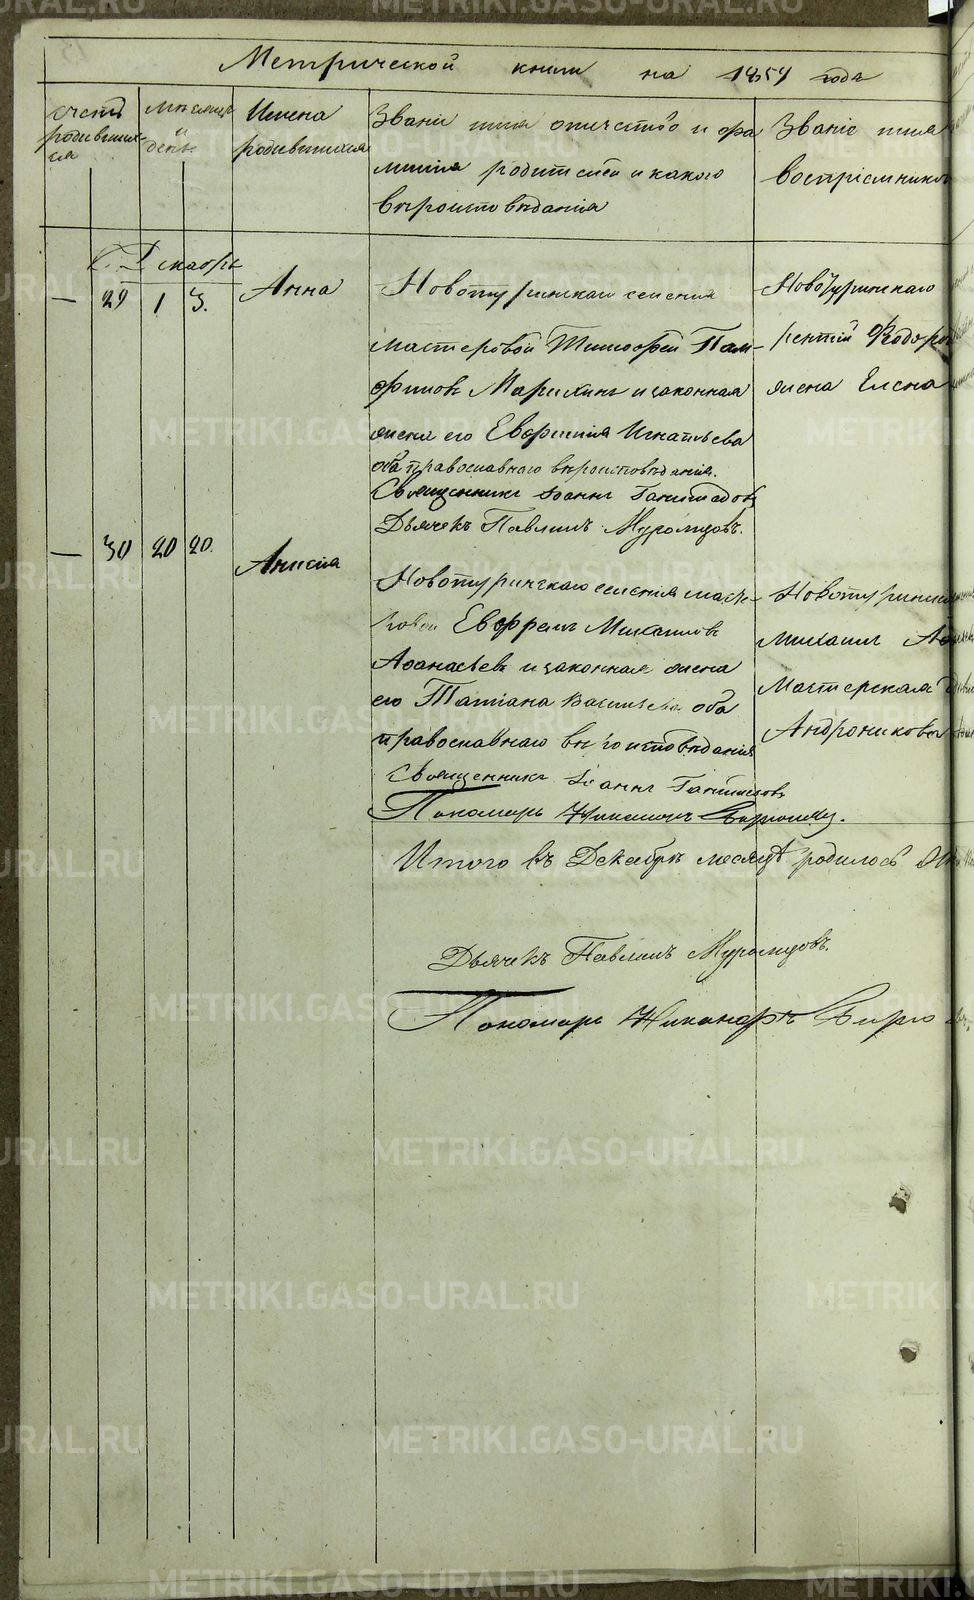 Метрической книги на 1859 года
Счетъ
родивших-
ся
Мѣсяцъ
и
день
Имена
родившихся
Званіе имя отчество и фа
милія родителей и какого
вѣроисповѣданія
Званіе имя
воспріемников
Декабрь
— 29 1 3. Анна
Новотуринскаго селенія
мастеровой Тимофей Пам-
филовъ и законная
жена его Евфимія Игнатьева
оба православнаго вѣроисповѣданія.
Священникъ Іоаннъ
Дьячекъ Павлинъ Муромцовъ.
Новотуринскаго
Федоров
жена Елена
— 30 20 20. Анисія
Новотуринскаго селенія масте-
ровой Евфремъ Михаиловъ
Афанасьевъ и законная жена
его Татіана Васильева оба
православнаго вѣроисповѣданія
Священникъ Іоаннъ
Пономарь Никаноръ
Новотуринск
Михаил
Мастерская
Андроникова
Итого въ Декабрѣ месяцѣ родилось
Дьячекъ Павлинъ Муромцовъ.
Пономарь Никаноръ
METRIKI.GASO-URAL.RU